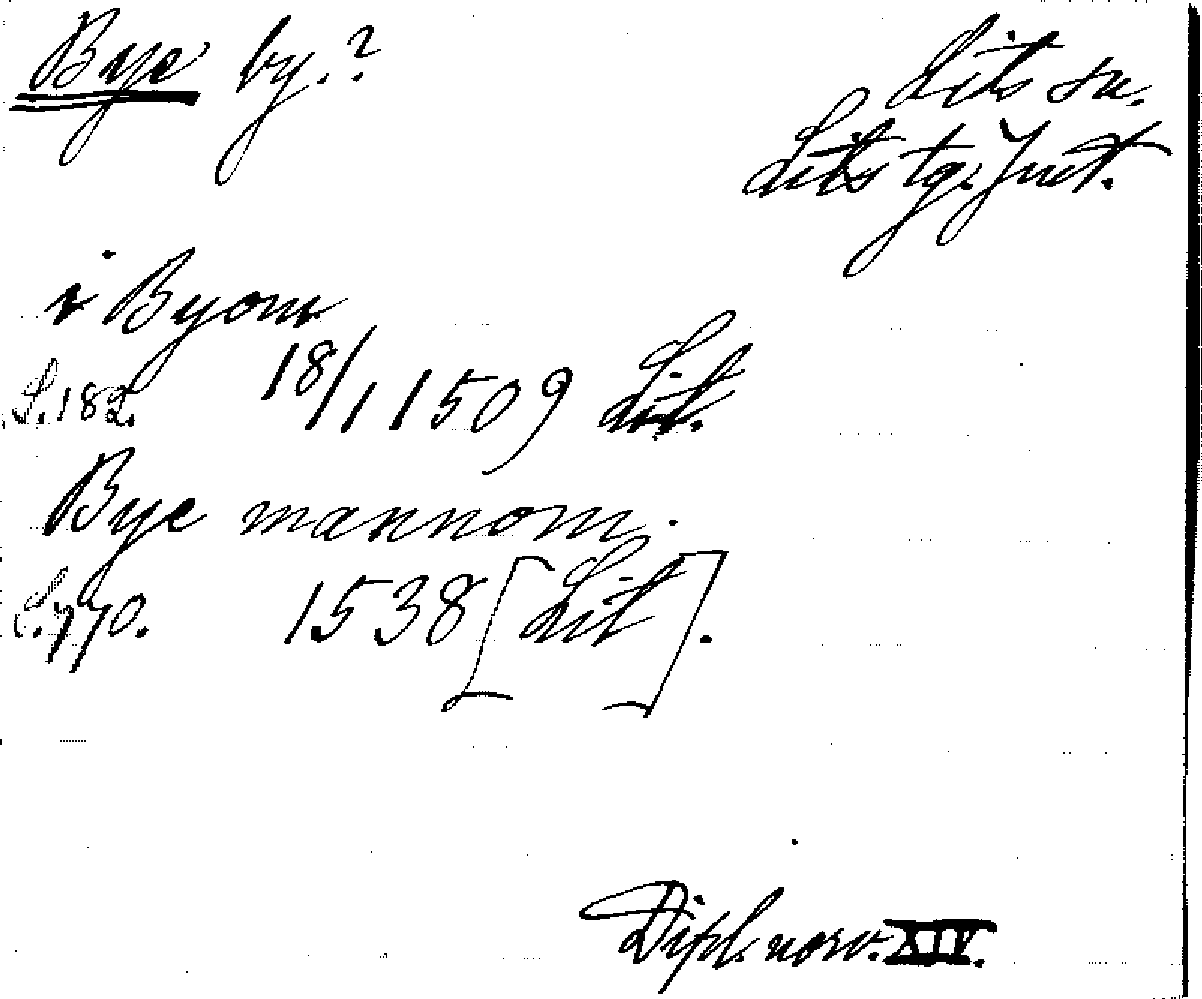 Bye by.?
Lits sn.
Lits tg. Jmt.
i Byom
S. 182. 18/1 1509 Lit.
Bye mannom.
S. 770. 1538 [Lit].
Dipl. norv. XIV.